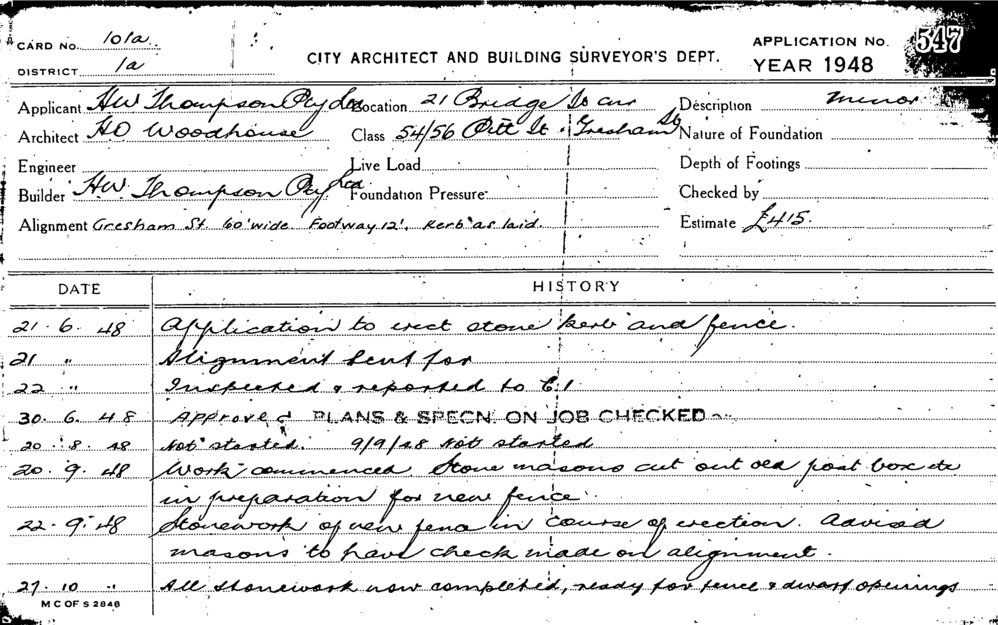 CARD No. 101a.
DISTRICT 1a
CITY ARCHITECT AND BUILDING SURVEYOR'S DEPT.
APPLICATION No. 547
YEAR 1948
Applicant HW Thompson Pty Ltd Location 21 Bridge St cnr Description minor
Architect HO Woodhouse Class 54/56 Pitt St. Gresham St Nature of Foundation
Engineer Live Load Depth of Footings
Builder HW. Thompson Pty Ltd Foundation Pressure Checked by
Alignment Gresham St. 60' wide. Footway 12'. Kerb as laid. Estimate £415.
DATE HISTORY
21. 6. 48 Application to erect stone kerb and fence.
21 " Alignment sent for
22 " Inspected & reported to C.I
30. 6. 48 Approved PLANS & SPECN. ON JOB CHECKED
20. 8. 48 Not started. 9/9/48 Not started
20. 9. 48 Work commenced. Stone masons cut out old post box etc
in preparation for new fence.
22. 9. 48 Stonework of new fence in course of erection. Advised
masons to have check made on alignment.
27. 10 " All stonework now completed, ready for fence & dwarf openings
M C OF S 2846